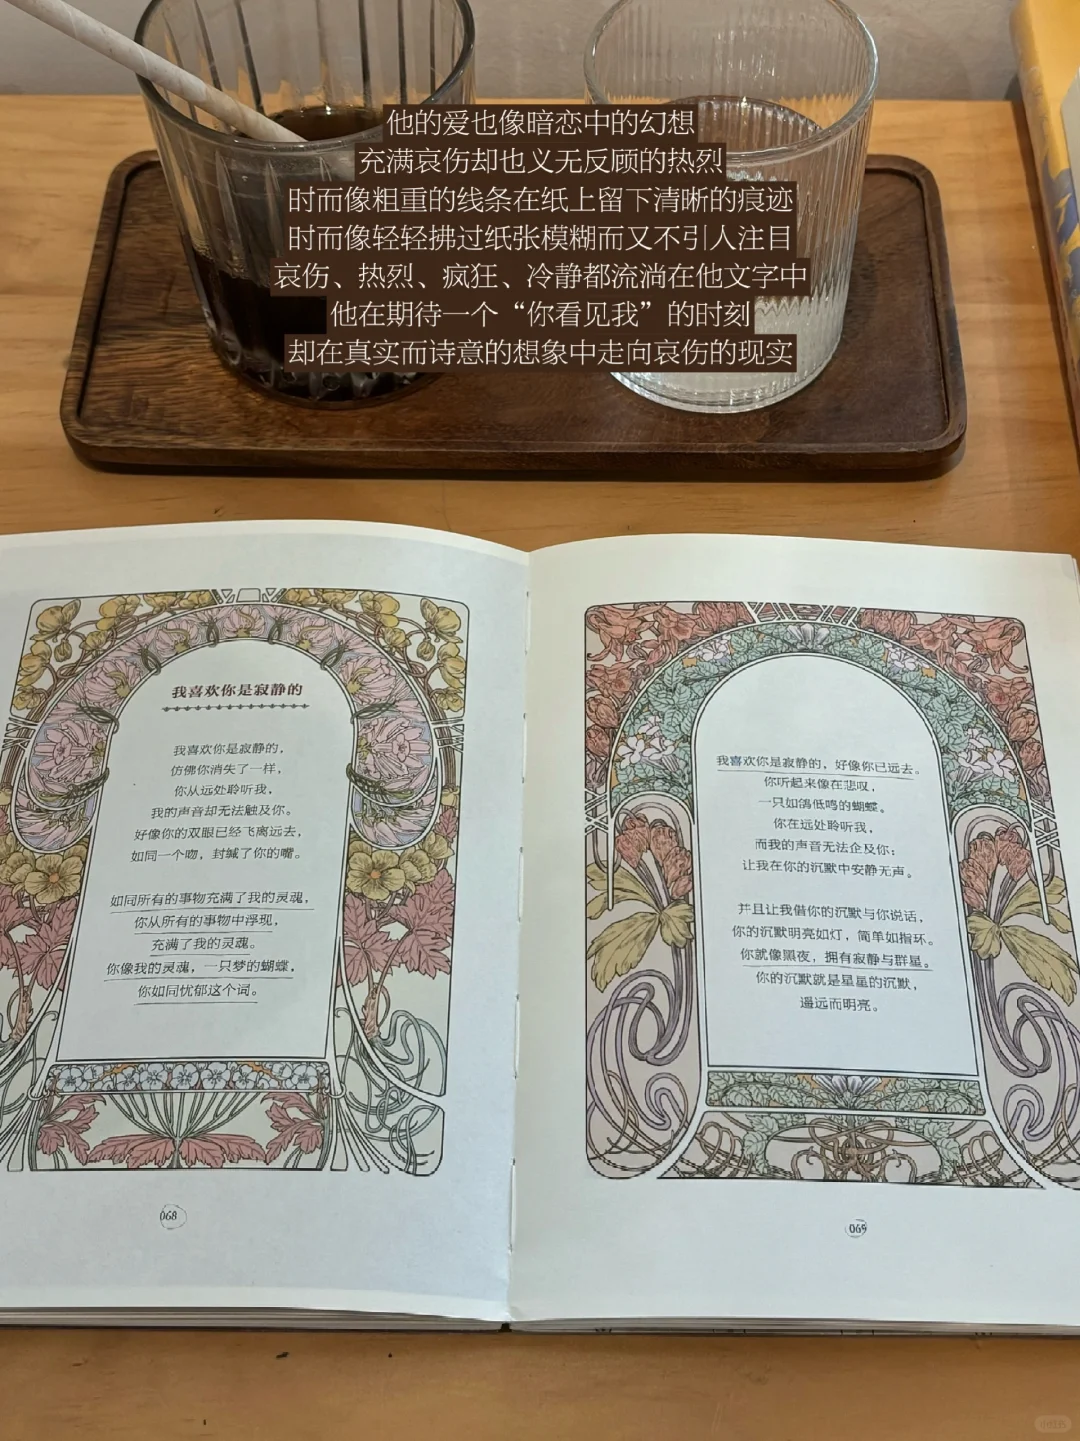 他的爱也像暗恋中的幻想
充满哀伤却也义无反顾的热烈
时而像粗重的线条在纸上留下清晰的痕迹
时而像轻轻拂过纸张模糊而又不引人注目
哀伤、热烈、疯狂、冷静都流淌在他文字中
他在期待一个“你看见我”的时刻
却在真实而诗意的想象中走向哀伤的现实
我喜欢你是寂静的
我喜欢你是寂静的，
仿佛你消失了一样，
你从远处聆听我，
我的声音却无法触及你。
好像你的双眼已经飞离远去，
如同一个吻，封缄了你的嘴。
如同所有的事物充满了我的灵魂，
你从所有的事物中浮现，
充满了我的灵魂。
你像我的灵魂，一只梦的蝴蝶，
你如同忧郁这个词。
068
我喜欢你是寂静的，好像你已远去。
你听起来像在悲叹，
一只如鸽低鸣的蝴蝶。
你在远处聆听我，
而我的声音无法企及你：
让我在你的沉默中安静无声。
并且让我借你的沉默与你说话，
你的沉默明亮如灯，简单如指环。
你就像黑夜，拥有寂静与群星。
你的沉默就是星星的沉默，
遥远而明亮。
069
小红书